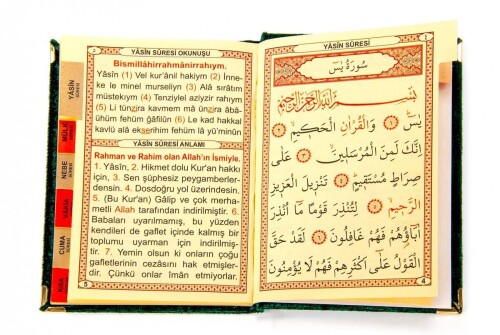 YÂSÎN SÛRESİ OKUNUŞU
Bismillâhirrahmânirrahıym.
Yâsîn (1) Vel kur'ânil hakiym (2) İnne-
ke le minel murseliyn (3) Alâ sırâtım
müstekıym (4) Tenziylel aziyzir rahıym.
(5) Li tünzira kavmem mâ ünzira âbâ-
ühüm fehüm gâfilûn (6) Le kad hakkal
kavlü alâ ekserihim fehüm lâ yü'minûn
YÂSÎN SÛRESİ ANLAMI
Rahman ve Rahim olan Allah'ın İsmiyle.
1. Yâsîn, 2. Hikmet dolu Kur'an hakkı
için, 3. Sen şüphesiz peygamberler-
densin. 4. Dosdoğru yol üzerindesin.
5. (Bu Kur'an) Gâlip ve çok merha-
metli Allah tarafından indirilmiştir. 6.
Babaları uyarılmamış, bu yüzden
kendileri de gaflet içinde kalmış bir
toplumu uyarman için indirilmiş-
tir. 7. Yemin olsun ki onların çoğu
gafletlerinin cezasını hak etmişler-
dir. Çünkü onlar îman etmiyorlar.
5
YÂSÎN
SÛRESİ
MÜLK
NEBE
VAKIA
CUMA
YÂSÎN SÛRESİ
سُورَةُ يٰسۤ
بِسْمِ اللّٰهِ الرَّحْمٰنِ الرَّحِيمِ
يٰسۤ ﴿١﴾ وَالْقُرْاٰنِ الْحَكِيمِ ﴿٢﴾
اِنَّكَ لَمِنَ الْمُرْسَلِينَ ﴿٣﴾ عَلٰى
صِرَاطٍ مُسْتَقِيمٍ ﴿٤﴾ تَنْزِيلَ الْعَزِيزِ
الرَّحِيمِ ﴿٥﴾ لِتُنْذِرَ قَوْمًا مَٓا اُنْذِرَ
اٰبَٓاؤُ۬هُمْ فَهُمْ غَافِلُونَ ﴿٦﴾ لَقَدْ حَقَّ
الْقَوْلُ عَلٰٓى اَكْثَرِهِمْ فَهُمْ لَا يُؤْمِنُونَ
4